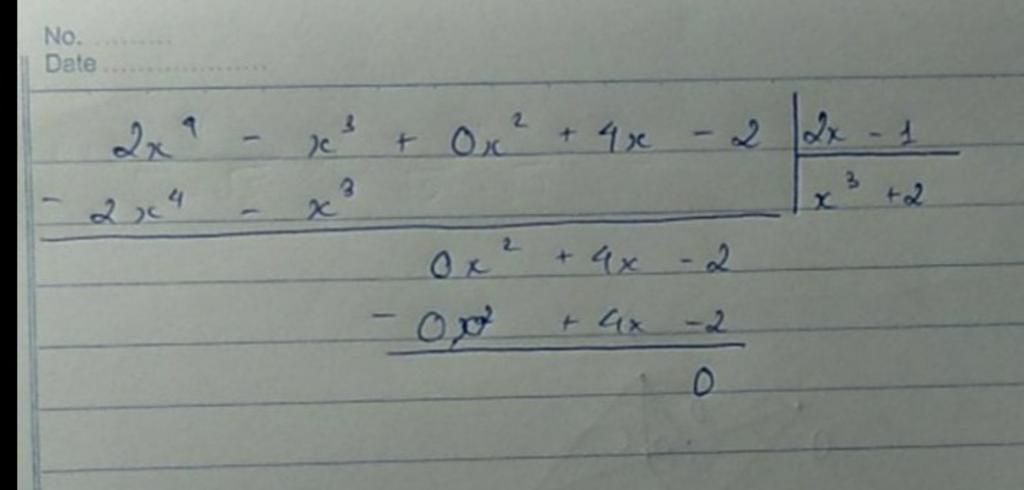 No. ............
Date ........................
2x⁴ - x³ + 0x² + 4x - 2 | 2x - 1
- 2x⁴ - x³ | x³ + 2
0x² + 4x - 2
- 0x² + 4x - 2
0